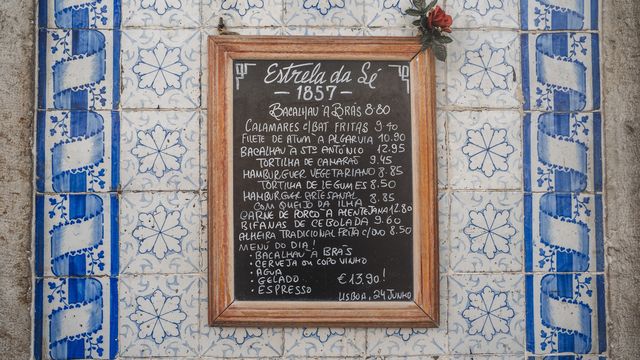 Estrela da Sé
1857
BACALHAU À BRÁS 8.80
CALAMARES C/BAT FRITAS 9.40
FILETE DE ATUM À ALGARVIA 10.90
BACALHAU À STO ANTÓNIO 12.95
TORTILHA DE CAMARÃO 9.45
HAMBURGUER VEGETARIANO 8.85
TORTILHA DE LEGUMES 8.50
HAMBURGUER ARTESANAL
COM QUEIJO DA ILHA 8.85
CARNE DE PORCO À ALENTEJANA 12.80
BIFANAS DE CEBOLADA 9.60
ALHEIRA TRADICIONAL FRITA C/OVO 8.50
MENU DO DIA!
• BACALHAU À BRÁS
• CERVEJA OU COPO VINHO
• AGUA
• GELADO
• ESPRESSO
€13.90!
LISBOA, 24 JUNHO